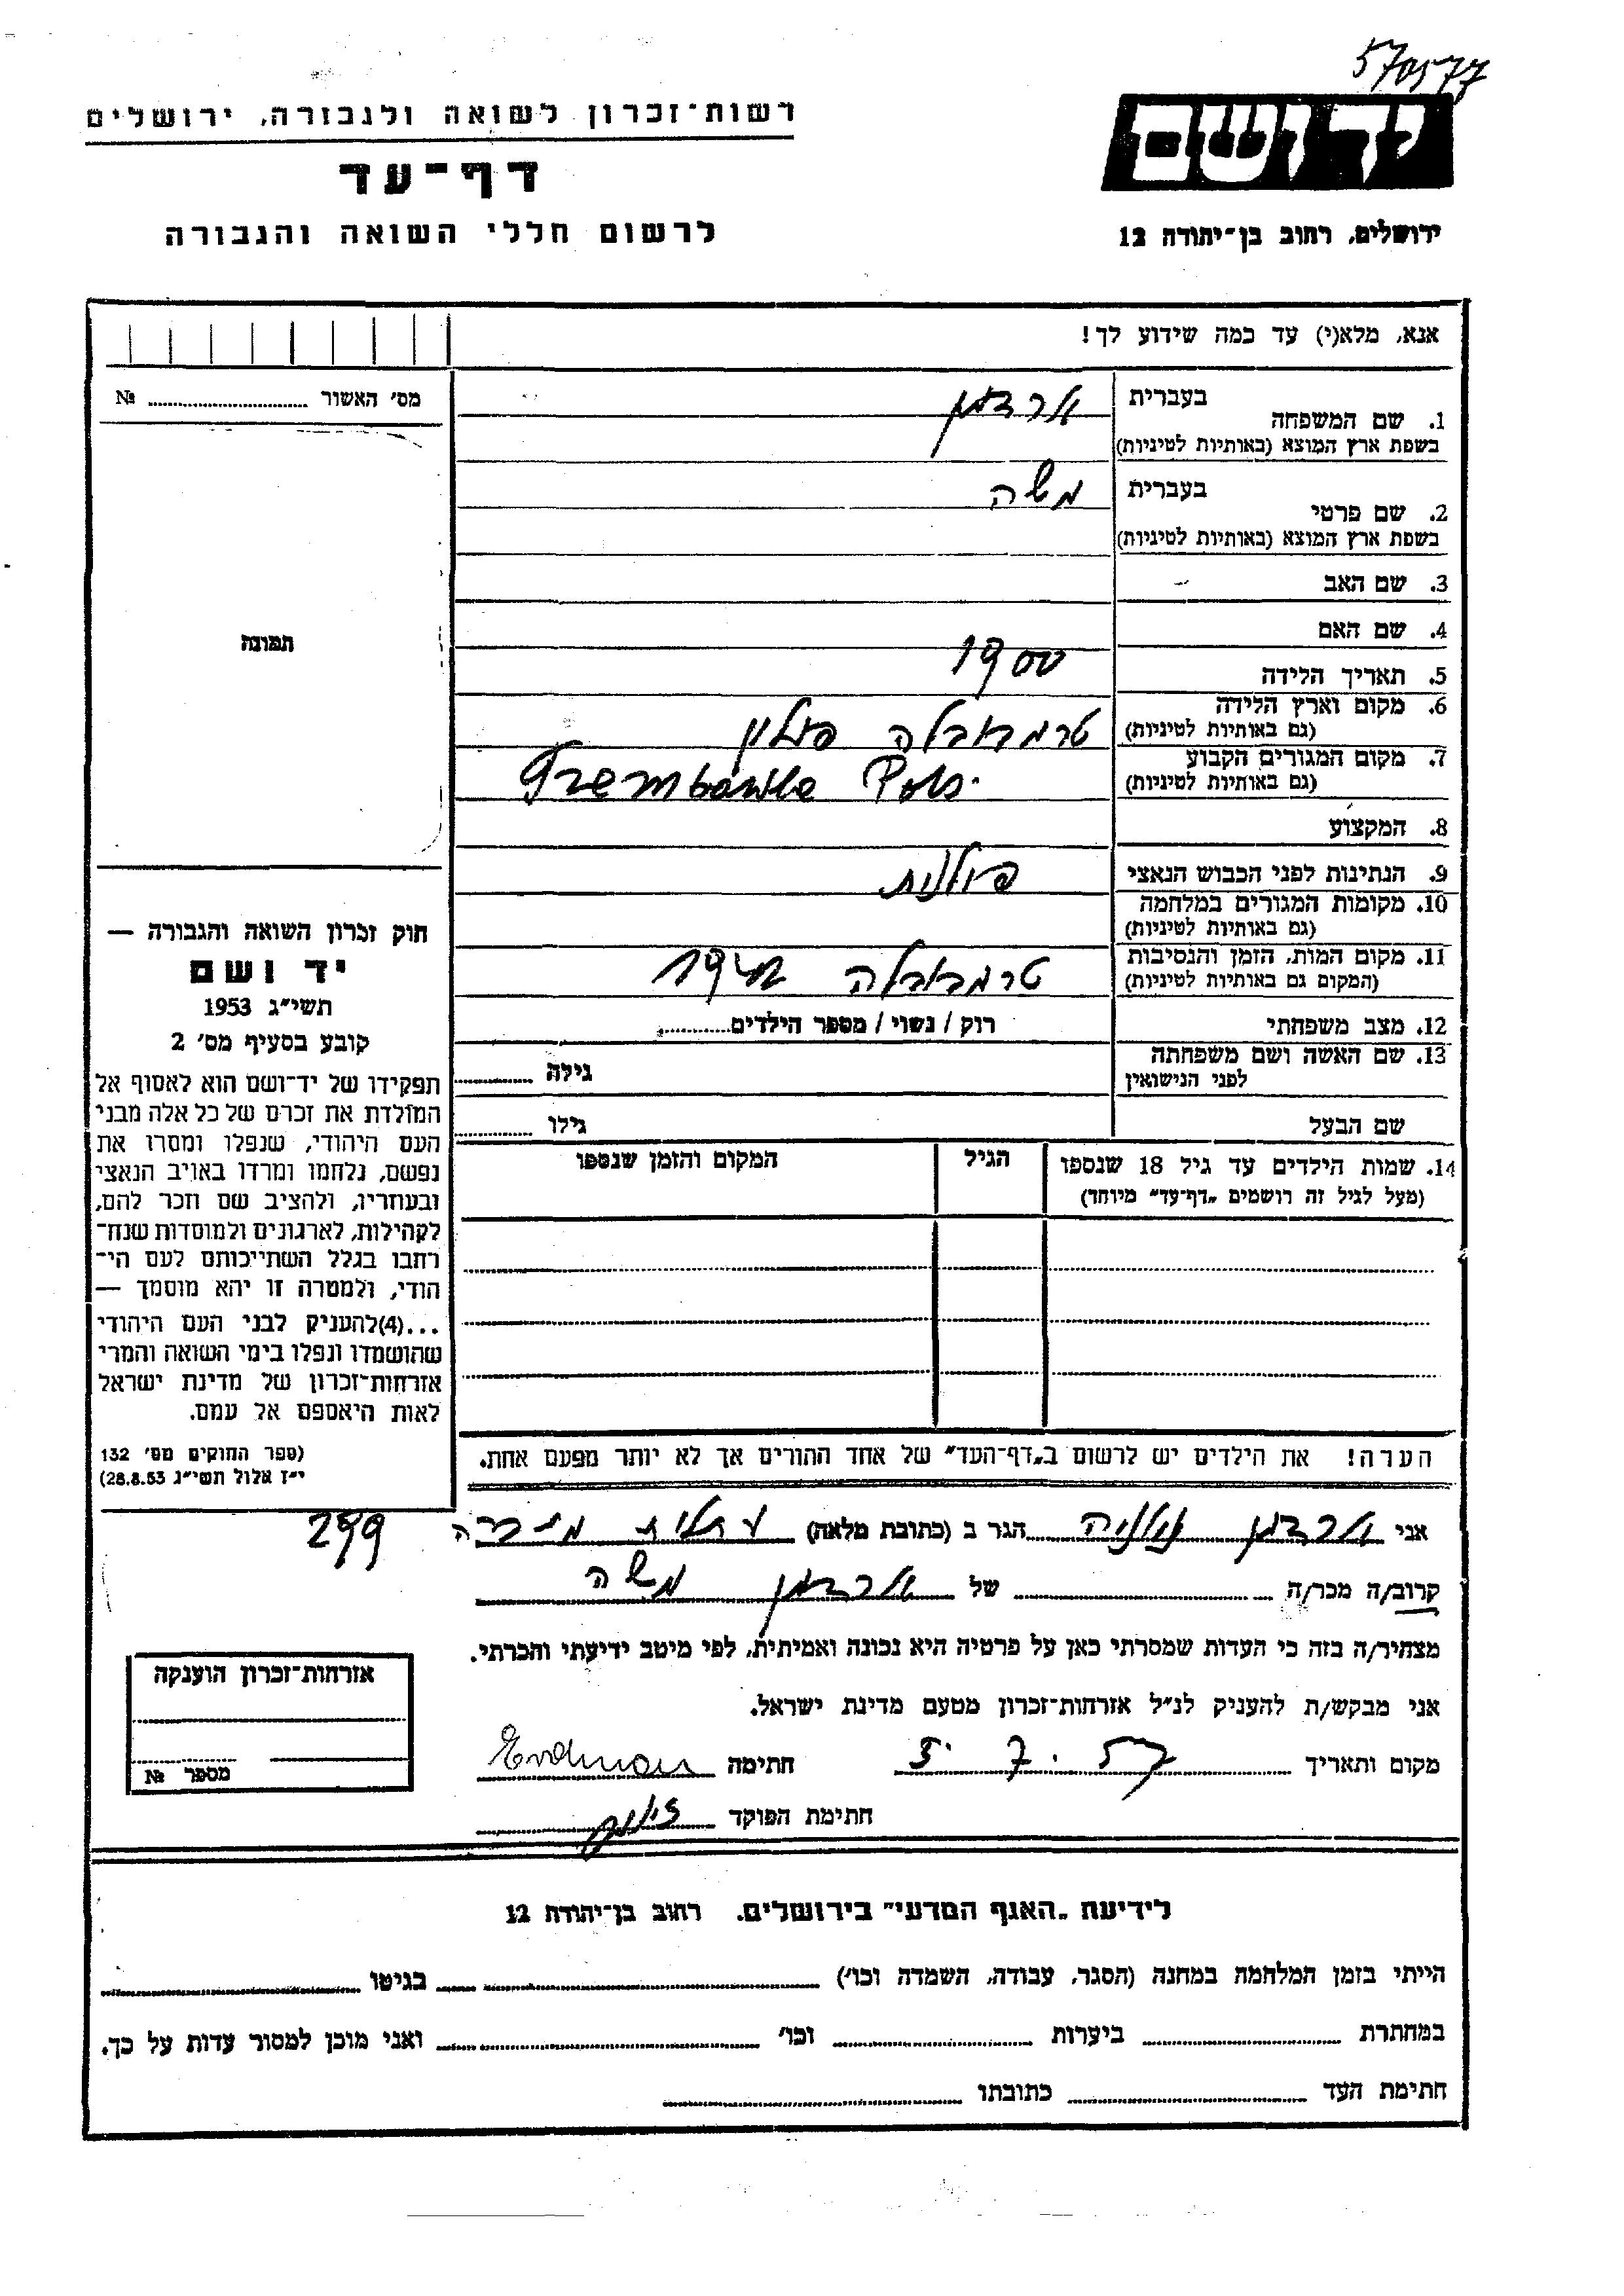 570577
רשות־זכרון לשואה ולגבורה, ירושלים
יד ושם
דף־עד
לרשום חללי השואה והגבורה
ירושלים, רחוב בן־יהודה 12
אנא, מלא(י) עד כמה שידוע לך!
מס' האשור ........ №
תמונה
1. שם המשפחה
בעברית ארדמן
בשפת ארץ המוצא (באותיות לטיניות)
2. שם פרטי
בעברית משה
בשפת ארץ המוצא (באותיות לטיניות)
3. שם האב
4. שם האם
5. תאריך הלידה 1900
6. מקום וארץ הלידה
(גם באותיות לטיניות) טרמבובלה פולין
7. מקום המגורים הקבוע
(גם באותיות לטיניות)
8. המקצוע
9. הנתינות לפני הכבוש הנאצי פולנית
10. מקומות המגורים במלחמה
(גם באותיות לטיניות)
11. מקום המות, הזמן והנסיבות
(המקום גם באותיות לטיניות) טרמבובלה 1942
12. מצב משפחתי רוק / נשוי / מספר הילדים........
13. שם האשה ושם משפחתה
לפני הנישואין גילה ........
שם הבעל גילו ........
14. שמות הילדים עד גיל 18 שנספו הגיל המקום והזמן שנספו
(מעל לגיל זה רושמים „דף־עד" מיוחד)
הערה! את הילדים יש לרשום ב„דף־העד" של אחד ההורים אך לא יותר מפעם אחת.
חוק זכרון השואה והגבורה —
יד ושם
תשי"ג 1953
קובע בסעיף מס' 2
תפקידו של יד־ושם הוא לאסוף אל
המולדת את זכרם של כל אלה מבני
העם היהודי, שנפלו ומסרו את
נפשם, נלחמו ומרדו באויב הנאצי
ובעוזריו, ולהציב שם וזכר להם,
לקהילות, לארגונים ולמוסדות שנח־
רחבו בגלל השתייכותם לעם הי־
הודי, ולמטרה זו יהא מוסמך —
...(4)להעניק לבני העם היהודי
שהושמדו ונפלו בימי השואה והמרי
אזרחות־זכרון של מדינת ישראל
לאות היאספם אל עמם.
(ספר החוקים מס' 132
י"ז אלול תשי"ג 28.8.53)
אני ארדמן הגר ב (כתובת מלאה) עתלית 299
קרוב/ה מכר/ה ........ של ארדמן משה
מצהיר/ה בזה כי העדות שמסרתי כאן על פרטיה היא נכונה ואמיתית, לפי מיטב ידיעתי והכרתי.
אני מבקש/ת להעניק לנ"ל אזרחות־זכרון מטעם מדינת ישראל.
מקום ותאריך 5.7.57 חתימה Erdman
חתימת הפוקד
אזרחות־זכרון הוענקה
מספר №
לידיעת „האגף המדעי" בירושלים. רחוב בן־יהודה 12
הייתי בזמן המלחמה במחנה (הסגר, עבודה, השמדה וכו') ........ בגיטו ........
במחתרת ........ ביערות ........ וכו' ........ ואני מוכן למסור עדות על כך.
חתימת העד ........ כתובתו ........